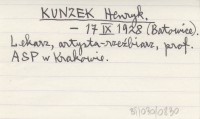 KUNZEK Henryk.
– 17 IX 1928 (Batowice).
Lekarz, artysta-rzeźbiarz, prof.
ASP w Krakowie.